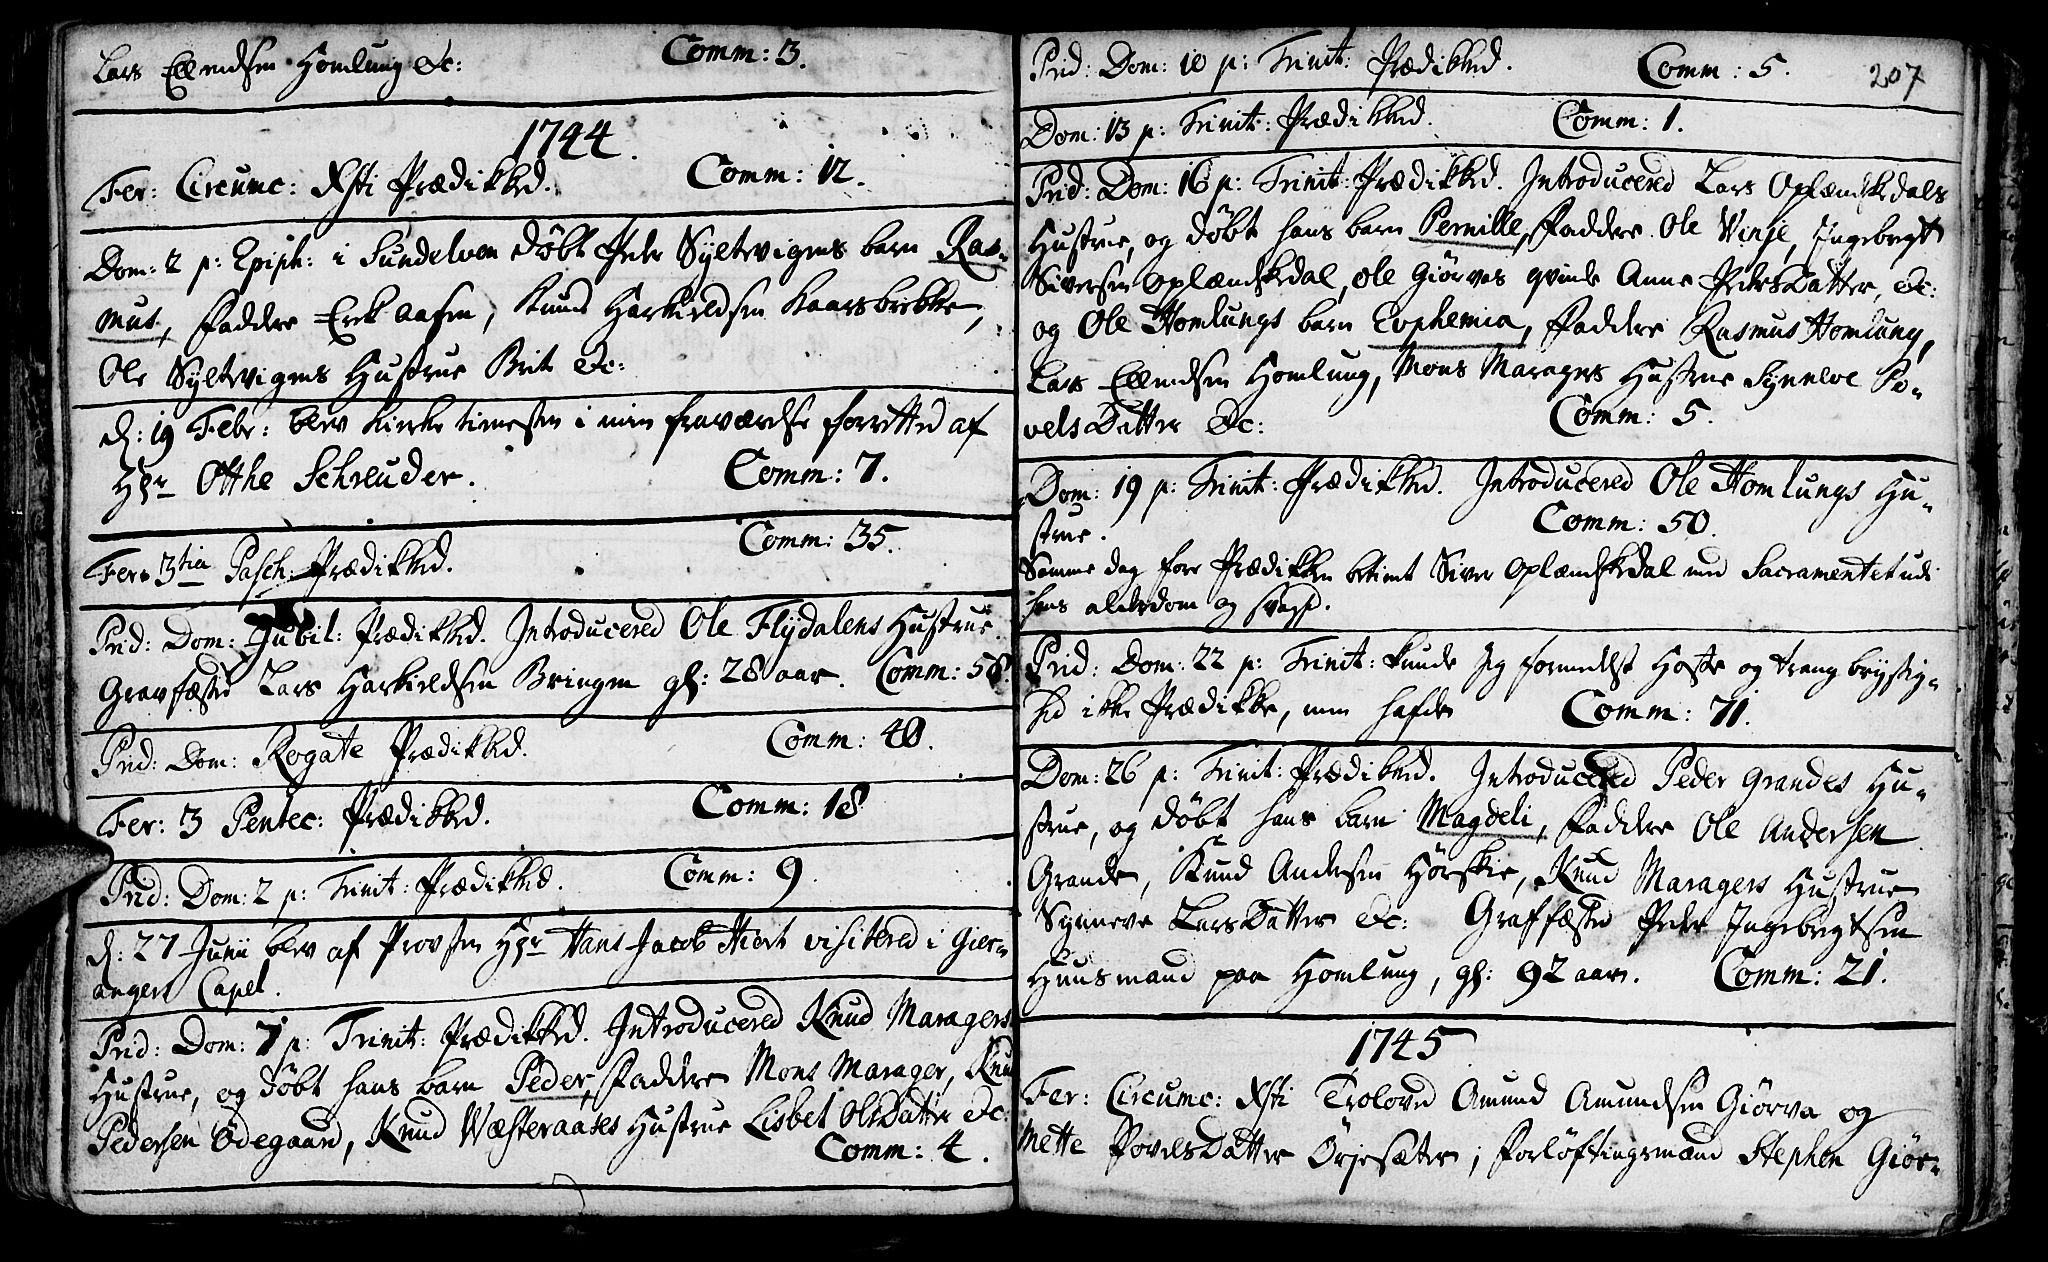 Lars Ellendsen Homlung &c: Comm: 3.
1744.
Fer: Circumc: Xsti Prædikked. Comm: 12.
Dom: 2 p: Epiph: i Sundelven døbt Peder Syltevigens barn Ras-
mus, Faddere Erik Aasen, Knud Harkieldsen Kaarsbrekke,
Ole Syltevigens Hustrue Brit &c:
d: 19 Febr: blev Kirke tienesten i min fraværelse forrettet af
Hr Otthe Schreuder. Comm: 7.
Fer: 3tia Pasch: Prædikked. Comm: 35.
Prid: Dom: Jubil: Prædikked. Introducered Ole Flydalens Hustrue.
Gravfæsted Lars Harkieldsen Bringen gl: 28 aar. Comm: 58.
Prid: Dom: Rogate Prædikked. Comm: 40.
Fer: 3 Pentec: Prædikked. Comm: 18
Prid: Dom: 2 p: Trinit: Prædikked. Comm: 9.
d: 27 Junii blev af Provsten Hr Hans Jacob Hiort visitered i Gier-
angers Capel.
Prid: Dom: 7 p: Trinit: Prædikked. Introducered Knud Maragers
Hustrue, og døbt hans barn Peder, Faddere Mons Marager, Knud
Pedersen Ødegaard, Knud Wæsteraases Hustrue Lisbet OlsDatter &c:
Comm: 4.
207
Prid: Dom: 10 p: Trinit: Prædikked. Comm: 5.
Dom: 13 p: Trinit: Prædikked. Comm: 1.
Prid: Dom: 16 p: Trinit: Prædikked. Introducered Lars Oplændskedals
Hustrue, og døbt hans barn Pernille, Faddere Ole Vinje, Ingebrigt
Siversen Oplændskedal, Ole Giørvas qvinde Anne PedersDatter, &c:
og Ole Homlungs barn Euphemia, Faddere Rasmus Homlung,
Lars Ellendsen Homlung, Mons Maragers Hustrue Synneve Po-
velsDatter &c: Comm: 5.
Dom: 19 p: Trinit: Prædikked. Introducered Ole Homlungs Hu-
strue. Comm: 50.
Samme dag fore Prædikken betient Siver Oplændskedal med Sacramentet udi
hans alderdom og svaghed.
Prid: Dom: 22 p: Trinit: kunde jeg formedelst Hoste og trang brystig-
hed ikke Prædikke, men hafde Comm: 71.
Dom: 26 p: Trinit: Prædikked. Introducered Peder Grandes Hu-
strue, og døbt hans barn Magdeli, Faddere Ole Andersen
Grande, Knud Andersen Hørskie, Knud Maragers Hustrue
Synneve LarsDatter &c: Graffæsted Peder Ingebrigtsen
Huusmand paa Homlung, gl: 92 aar. Comm: 21.
1745
Fer: Circumc: Xsti Trolovet Amund Amundsen Giørva og
Mette PovelsDatter Ørjesæter, Forløftingsmænd Stephen Giør-